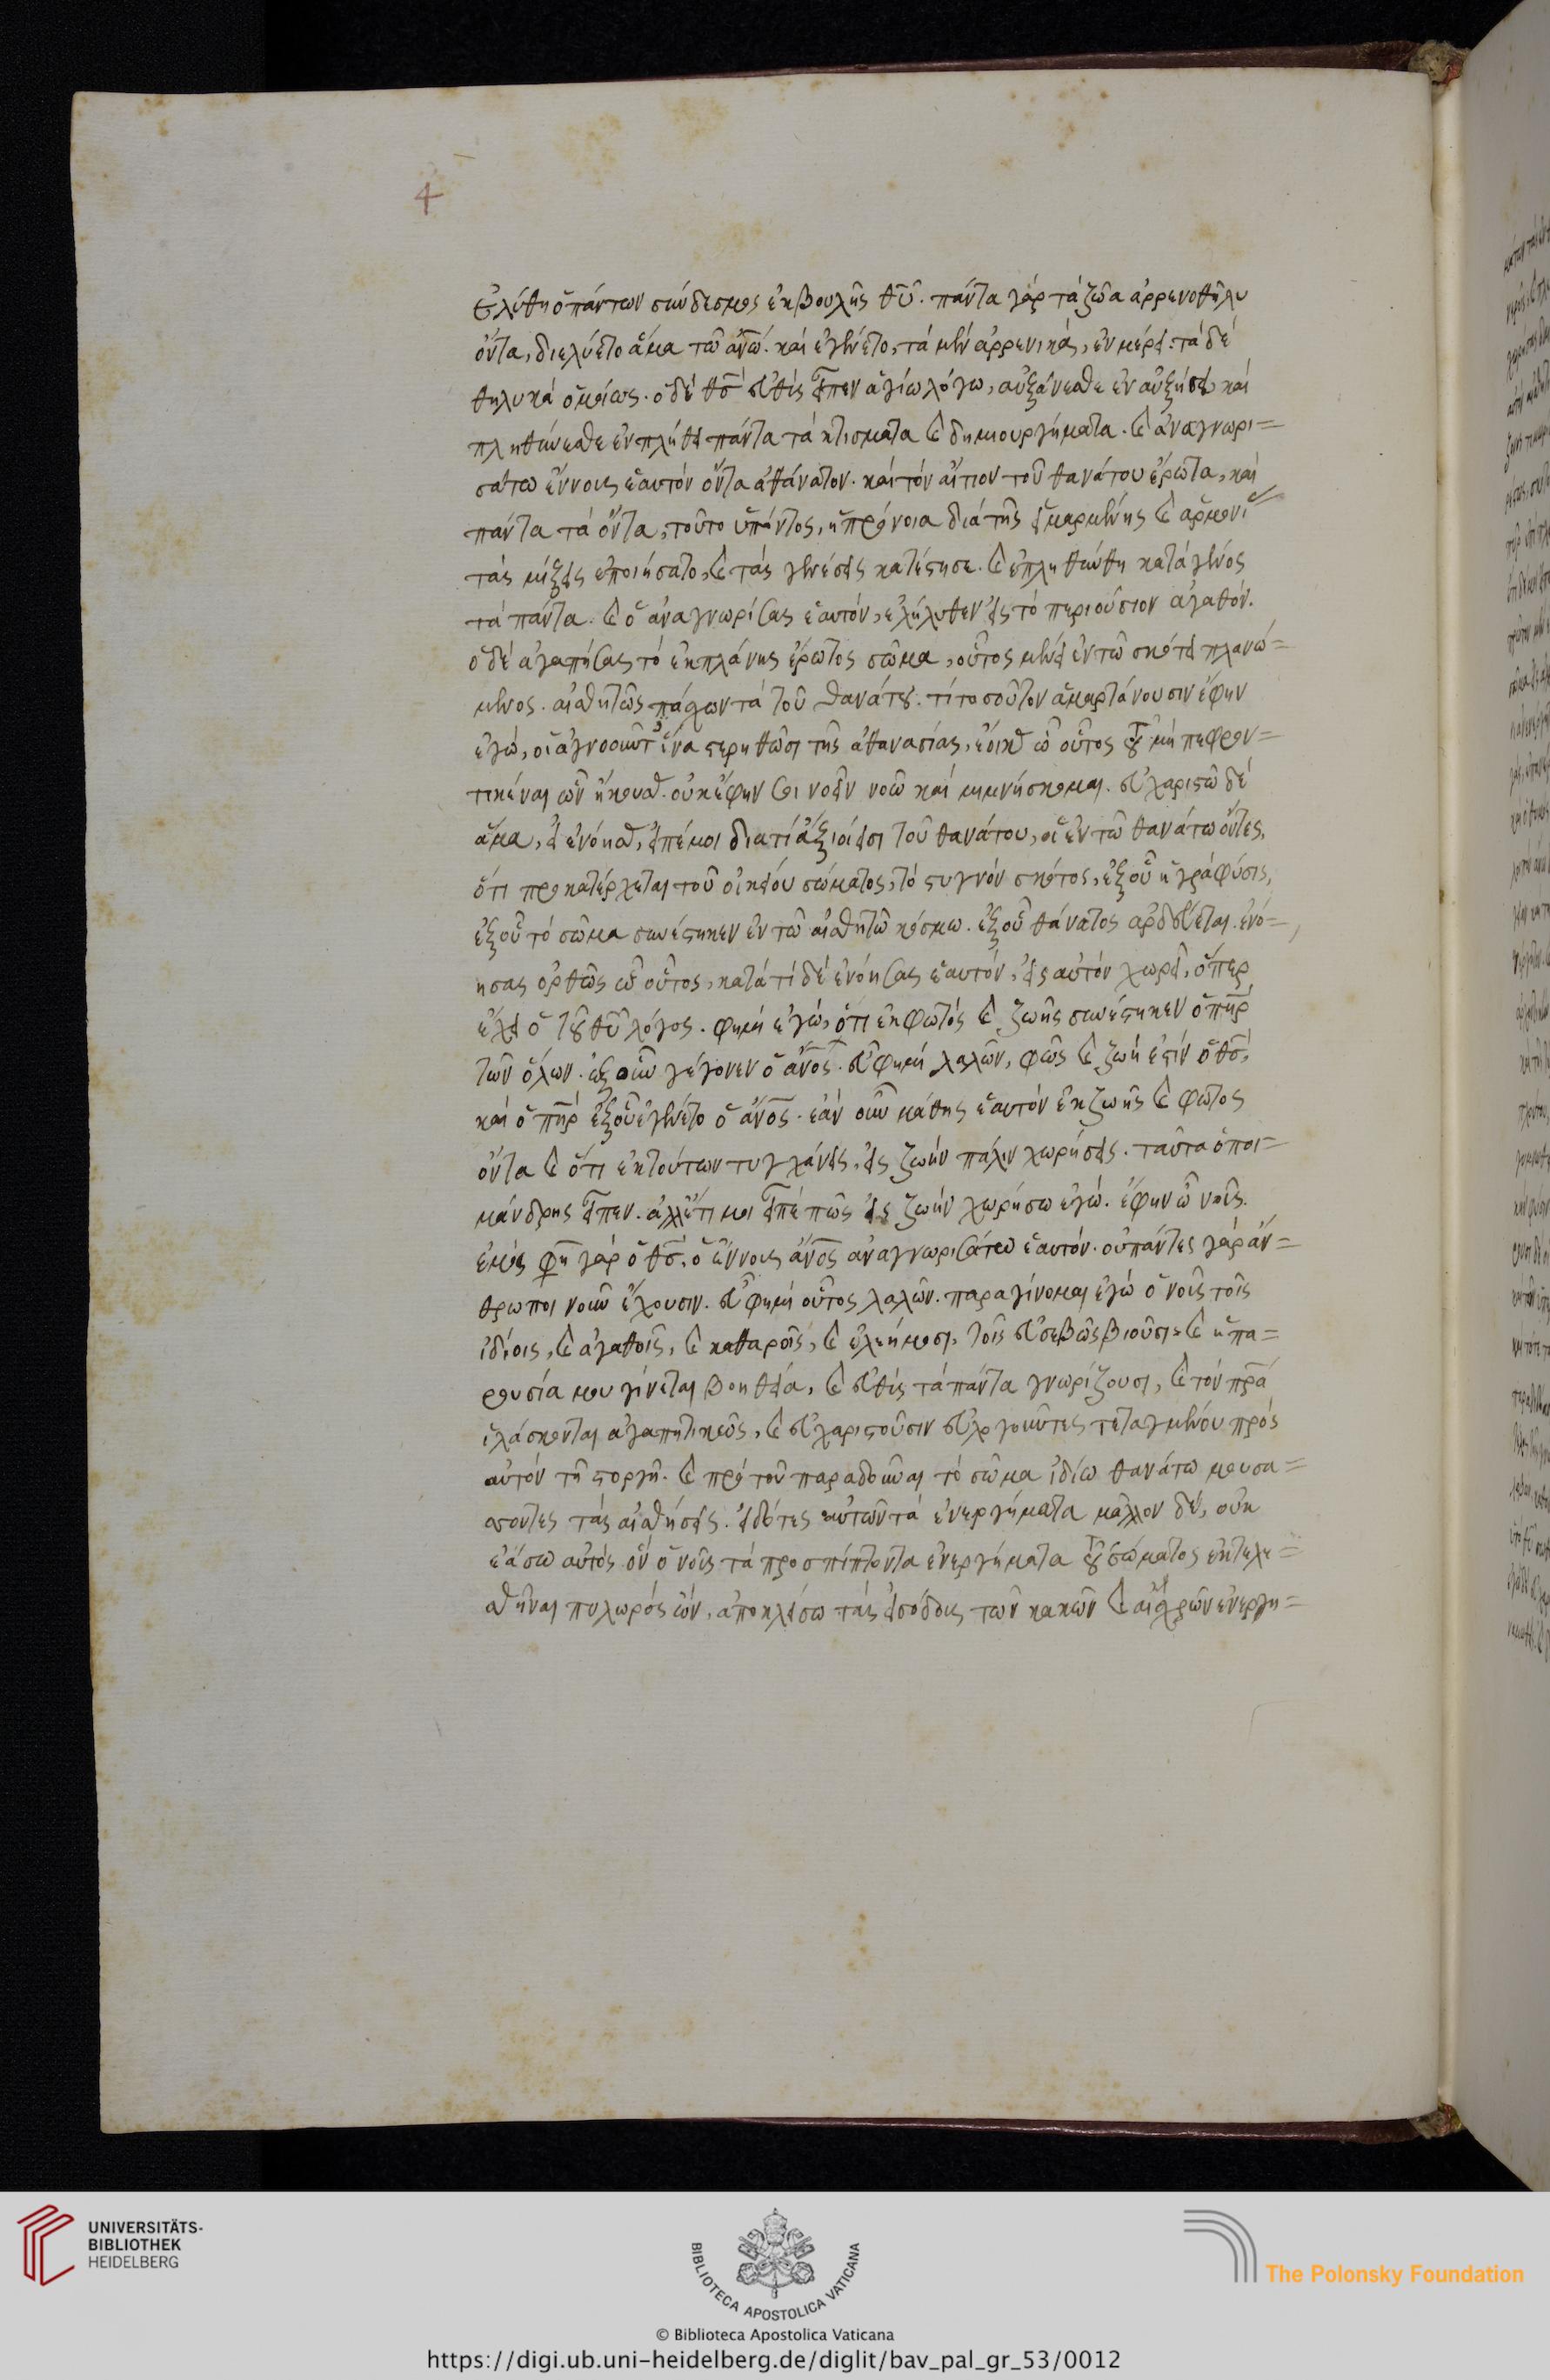 4
ἐλύθη ὁ πάντων σύνδεσμος ἐκ βουλῆς θ̅υ̅. πάντα γὰρ τὰ ζῶα ἀρρενοθήλυ
ὄντα, διελύετο ἅμα τῶ ἀν̅ω̅. καὶ ἐγένετο, τὰ μὲν ἀρρενικὰ, ἐν μέρει. τὰ δὲ
θηλυκὰ ὁμοίως. ὁ δὲ θ̅σ̅ εὐθὺς εἶπεν ἁγίω λόγω, αὐξάνεσθε ἐν αὐξήσει, καὶ
πληθύνεσθε ἐν πλήθει πάντα τὰ κτίσματα καὶ δημιουργήματα. καὶ ἀναγνωρι=
σάτω ἔννους ἑαυτὸν ὄντα ἀθάνατον. καὶ τὸν αἴτιον τοῦ θανάτου ἔρωτα, καὶ
πάντα τὰ ὄντα, τοῦτο εἰπόντος, ἡ πρόνοια διὰ τῆς εἱμαρμένης καὶ ἁρμονί
τὰς μίξεις ἐποιήσατο, καὶ τὰς γενέσεις κατέστησε. καὶ ἐπληθύνθη κατὰ γένος
τὰ πάντα. καὶ ὁ ἀναγνωρίσας ἑαυτὸν, ἐλήλυθεν εἰς τὸ περιούσιον ἀγαθόν.
ὁ δὲ ἀγαπήσας τὸ ἐκ πλάνης ἔρωτος σῶμα, οὗτος μένει ἐν τῶ σκότει πλανώ=
μενος. αἰσθητῶς πάσχων τὰ τοῦ θανάτου. τί τοσοῦτον ἁμαρτάνουσιν ἔφην
ἐγὼ, οἱ ἀγνοοῦντ ἵνα στερηθῶσι τῆς ἀθανασίας, ἔοικας ὦ οὗτος τοῦ μὴ πεφρον=
τικέναι ὧν ἤκουσας. οὐκ ἔφην σοι νοεῖν νοῶ καὶ μιμνήσκομαι. εὐχαριστῶ δὲ
ἅμα, εἰ ἐνόησας, εἰπέ μοι διατί ἄξιοί εἰσι τοῦ θανάτου, οἱ ἐν τῶ θανάτω ὄντες,
ὅτι προκατέρχεται τοῦ οἰκείου σώματος, τὸ στυγνὸν σκότος, ἐξ οὗ ἡ ὑγρὰ φύσις,
ἐξ οὗ τὸ σῶμα συνέστηκεν ἐν τῶ αἰσθητῶ κόσμω. ἐξ οὗ θάνατος ἀρδεύεται. ἐνό=
ησας ὀρθῶς ὦ οὗτος, κατὰ τί δὲ ἐνόησας ἑαυτὸν, εἰς αὐτὸν χωρεῖ, ὅπερ
ἔχει ὁ τοῦ θ̅υ̅ λόγος. φημὶ ἐγὼ, ὅτι ἐκ φωτὸς καὶ ζωῆς συνέστηκεν ὁ π̅η̅ρ̅
τῶν ὅλων. ἐξ οὗ γέγονεν ὁ ἄν̅ο̅ς̅. εὖ φημὶ λαλῶν, φῶς καὶ ζωή ἐστιν ὁ θ̅σ̅,
καὶ ὁ π̅η̅ρ̅ ἐξ οὗ ἐγένετο ὁ ἄν̅ο̅ς̅. ἐὰν οὖν μάθης ἑαυτὸν ἐκ ζωῆς καὶ φωτὸς
ὄντα καὶ ὅτι ἐκ τούτων τυγχάνεις, εἰς ζωὴν πάλιν χωρήσεις. ταῦτα ὁ ποι=
μάνδρης εἶπεν. ἀλλ' ἔτι μοι εἰπὲ πῶς εἰς ζωὴν χωρήσω ἐγὼ. ἔφην ὦ νοῦς.
ἐμός φη̅ γὰρ ὁ θ̅σ̅. ὁ ἔννους ἄν̅ο̅ς̅ ἀναγνωρισάτω ἑαυτόν. οὐ πάντες γὰρ ἄν=
θρωποι νοῦν ἔχουσιν. εὖ φημὶ οὗτος λαλῶν. παραγίνομαι ἐγὼ ὁ νοῦς τοῖς
ἰδίοις, καὶ ἀγαθοῖς, καὶ καθαροῖς, καὶ ἐλεήμοσι, τοῖς εὐσεβῶς βιοῦσι, καὶ ἡ πα=
ρουσία μου γίνεται βοήθεια, καὶ εὐθὺς τὰ πάντα γνωρίζουσι, καὶ τὸν π̅ρ̅α̅
ἱλάσκονται ἀγαπητικῶς, καὶ εὐχαριστοῦσιν εὐλογοῦντες τεταγμένου πρὸς
αὐτὸν τῇ στοργῇ. καὶ πρὸ τοῦ παραδοῦναι τὸ σῶμα ἰδίω θανάτω μουσα=
σοντες τὰς αἰσθήσεις. εἰδότες αὐτῶν τὰ ἐνεργήματα μᾶλλον δὲ, οὐκ
ἐάσω αὐτὸς ὃν ὁ νοῦς τὰ προσπίπτοντα ἐνεργήματα τοῦ σώματος ἐκτελε=
σθῆναι πυλωρὸς ὢν, ἀποκλείσω τὰς εἰσόδους τῶν κακῶν καὶ αἰσχρῶν ἐνεργη=
UNIVERSITÄTS-
BIBLIOTHEK
HEIDELBERG
BIBLIOTECA APOSTOLICA VATICANA
© Biblioteca Apostolica Vaticana
The Polonsky Foundation
https://digi.ub.uni-heidelberg.de/diglit/bav_pal_gr_53/0012